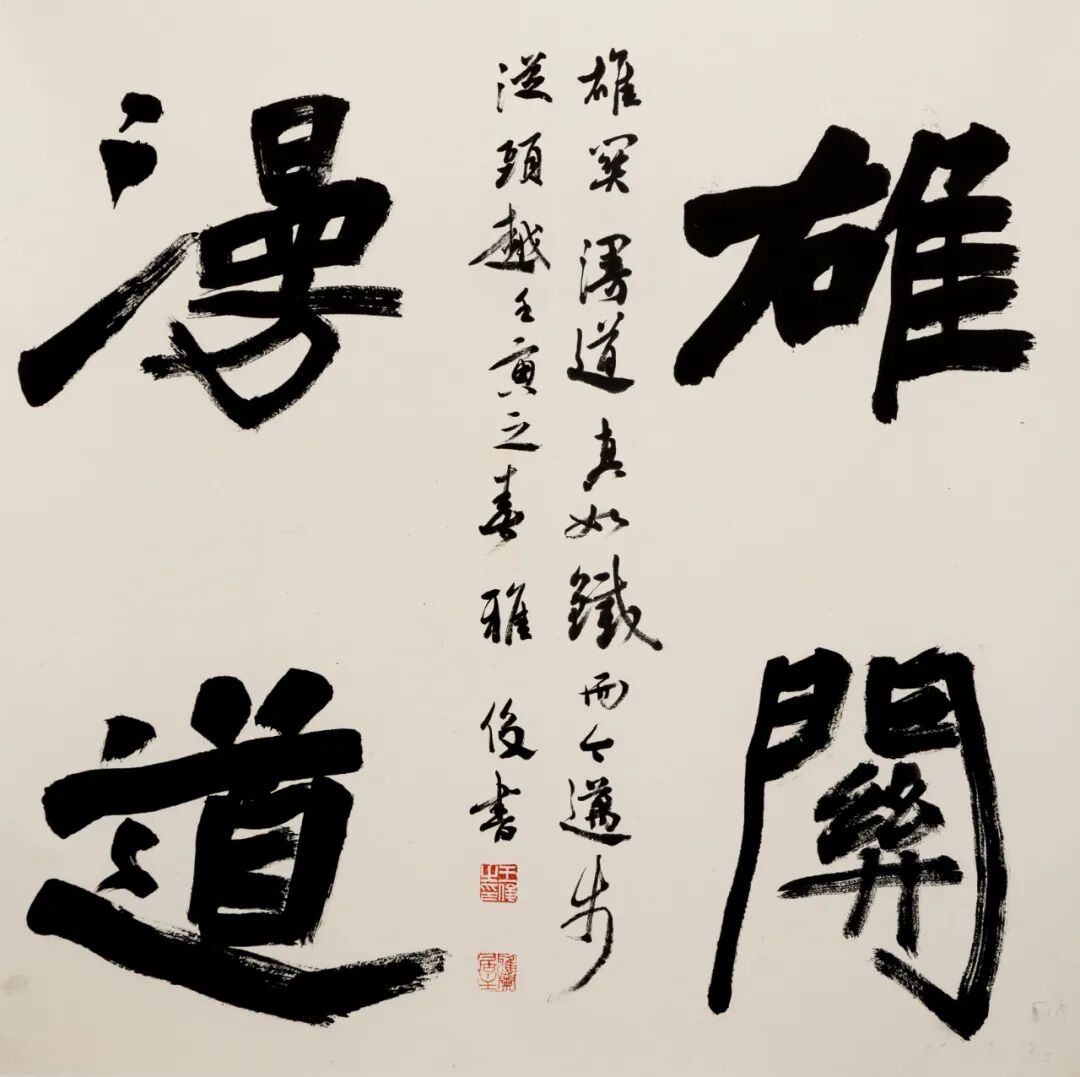 雄關
漫道
雄關漫道真如鐵而今邁步
從頭越壬寅之春雅俊書